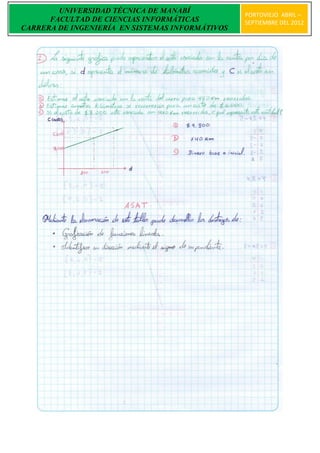 UNIVERSIDAD TÉCNICA DE MANABÍ
FACULTAD DE CIENCIAS INFORMÁTICAS
CARRERA DE INGENIERÍA EN SISTEMAS INFORMÁTIVOS
PORTOVIEJO ABRIL –
SEPTIEMBRE DEL 2012
La siguiente gráfica puede representar el costo asociado con la renta por día de
un carro, si d representa el número de kilómetros recorridos y C el costo en
dólares.
Estime el costo asociado con la renta del carro para km recorridos.
Estime cuantos kilómetros se recorrieron para un costo de
Si el costo de $8.000 está asociado con cero km recorridos, que representa esta cantidad?
d
$9.800
340 km
Dinero base o inicial.
ASAT
Mediante la elaboración de este taller puedo desarrollar las destrezas de:
• Graficación de funciones lineales.
• Identificar su dirección mediante el signo de su pendiente.